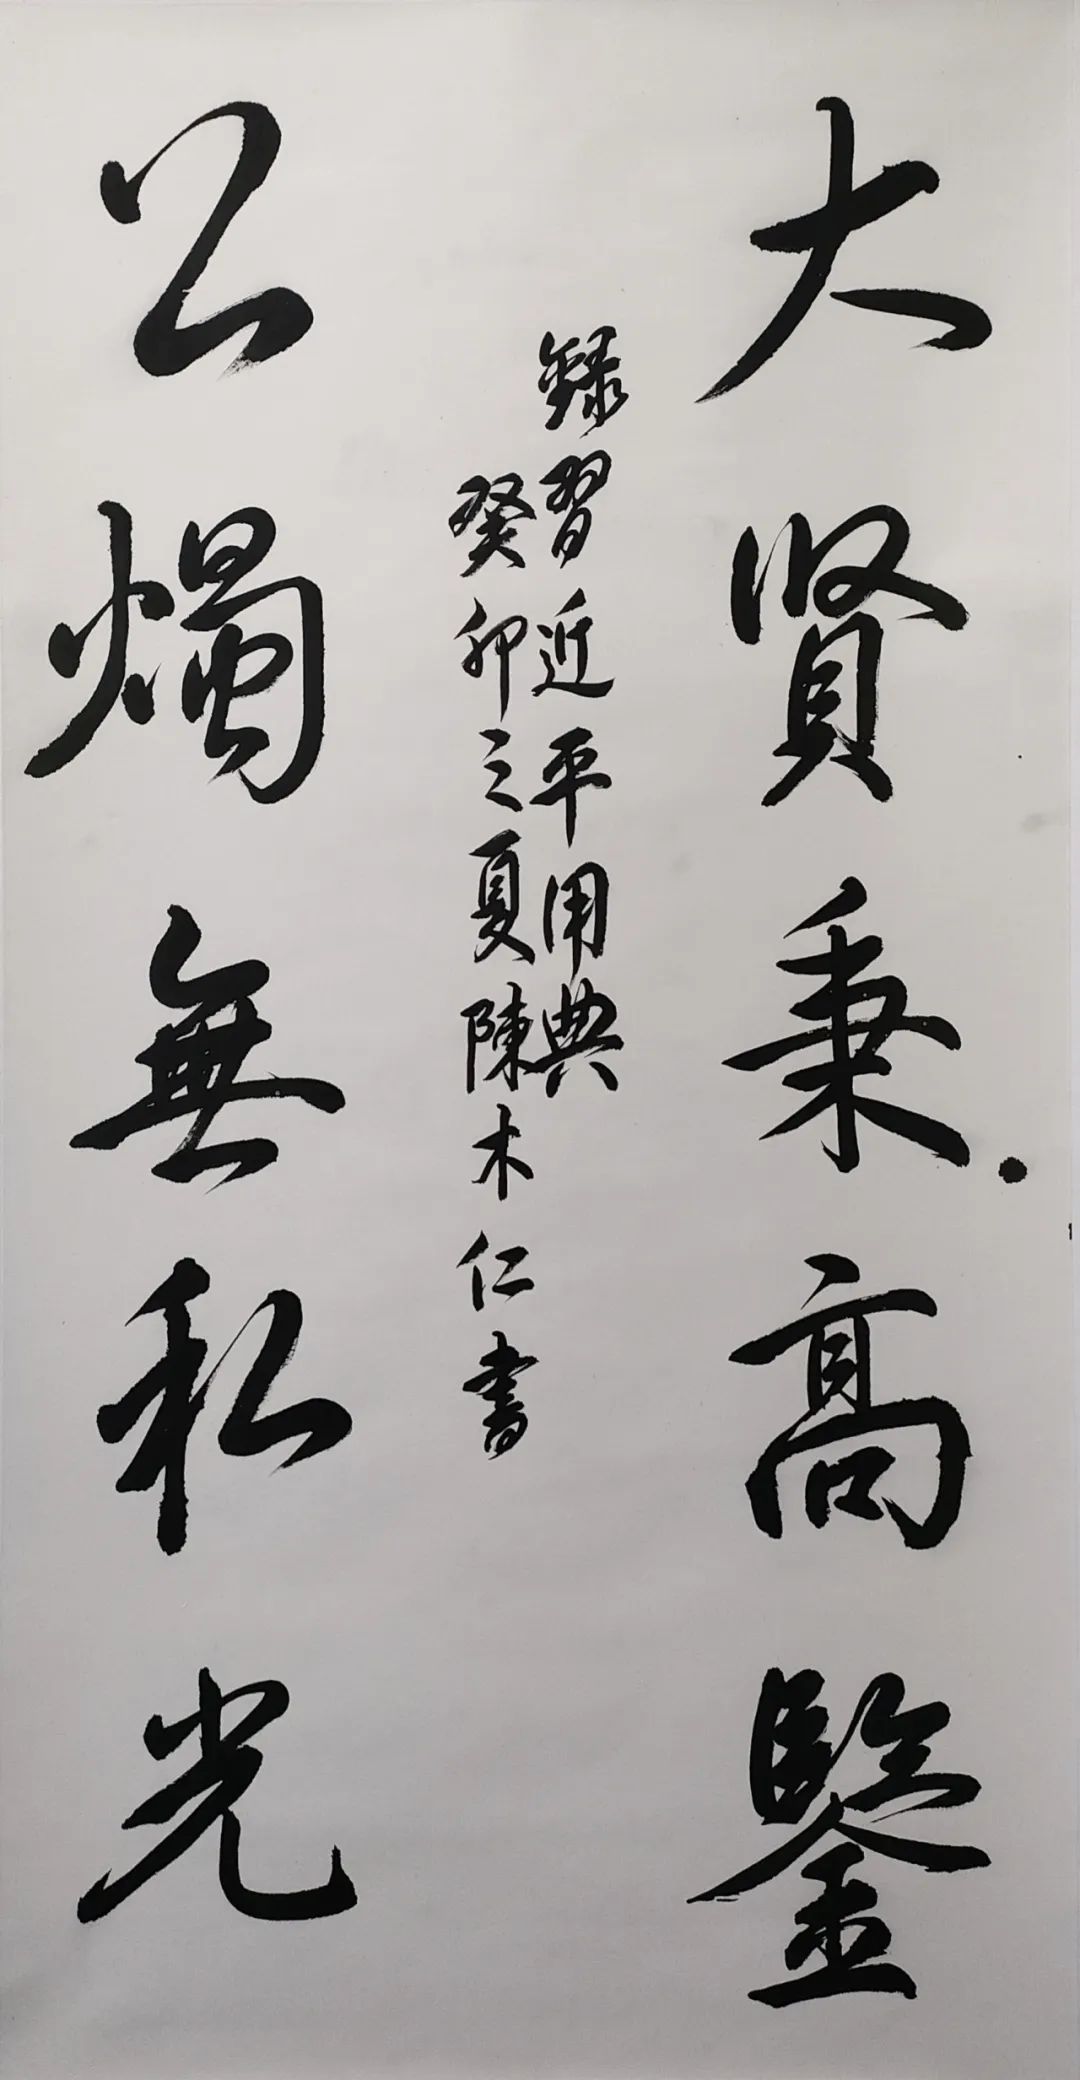 大賢秉高鑒
公燭無私光
録習近平用典
癸卯之夏陳木仁書